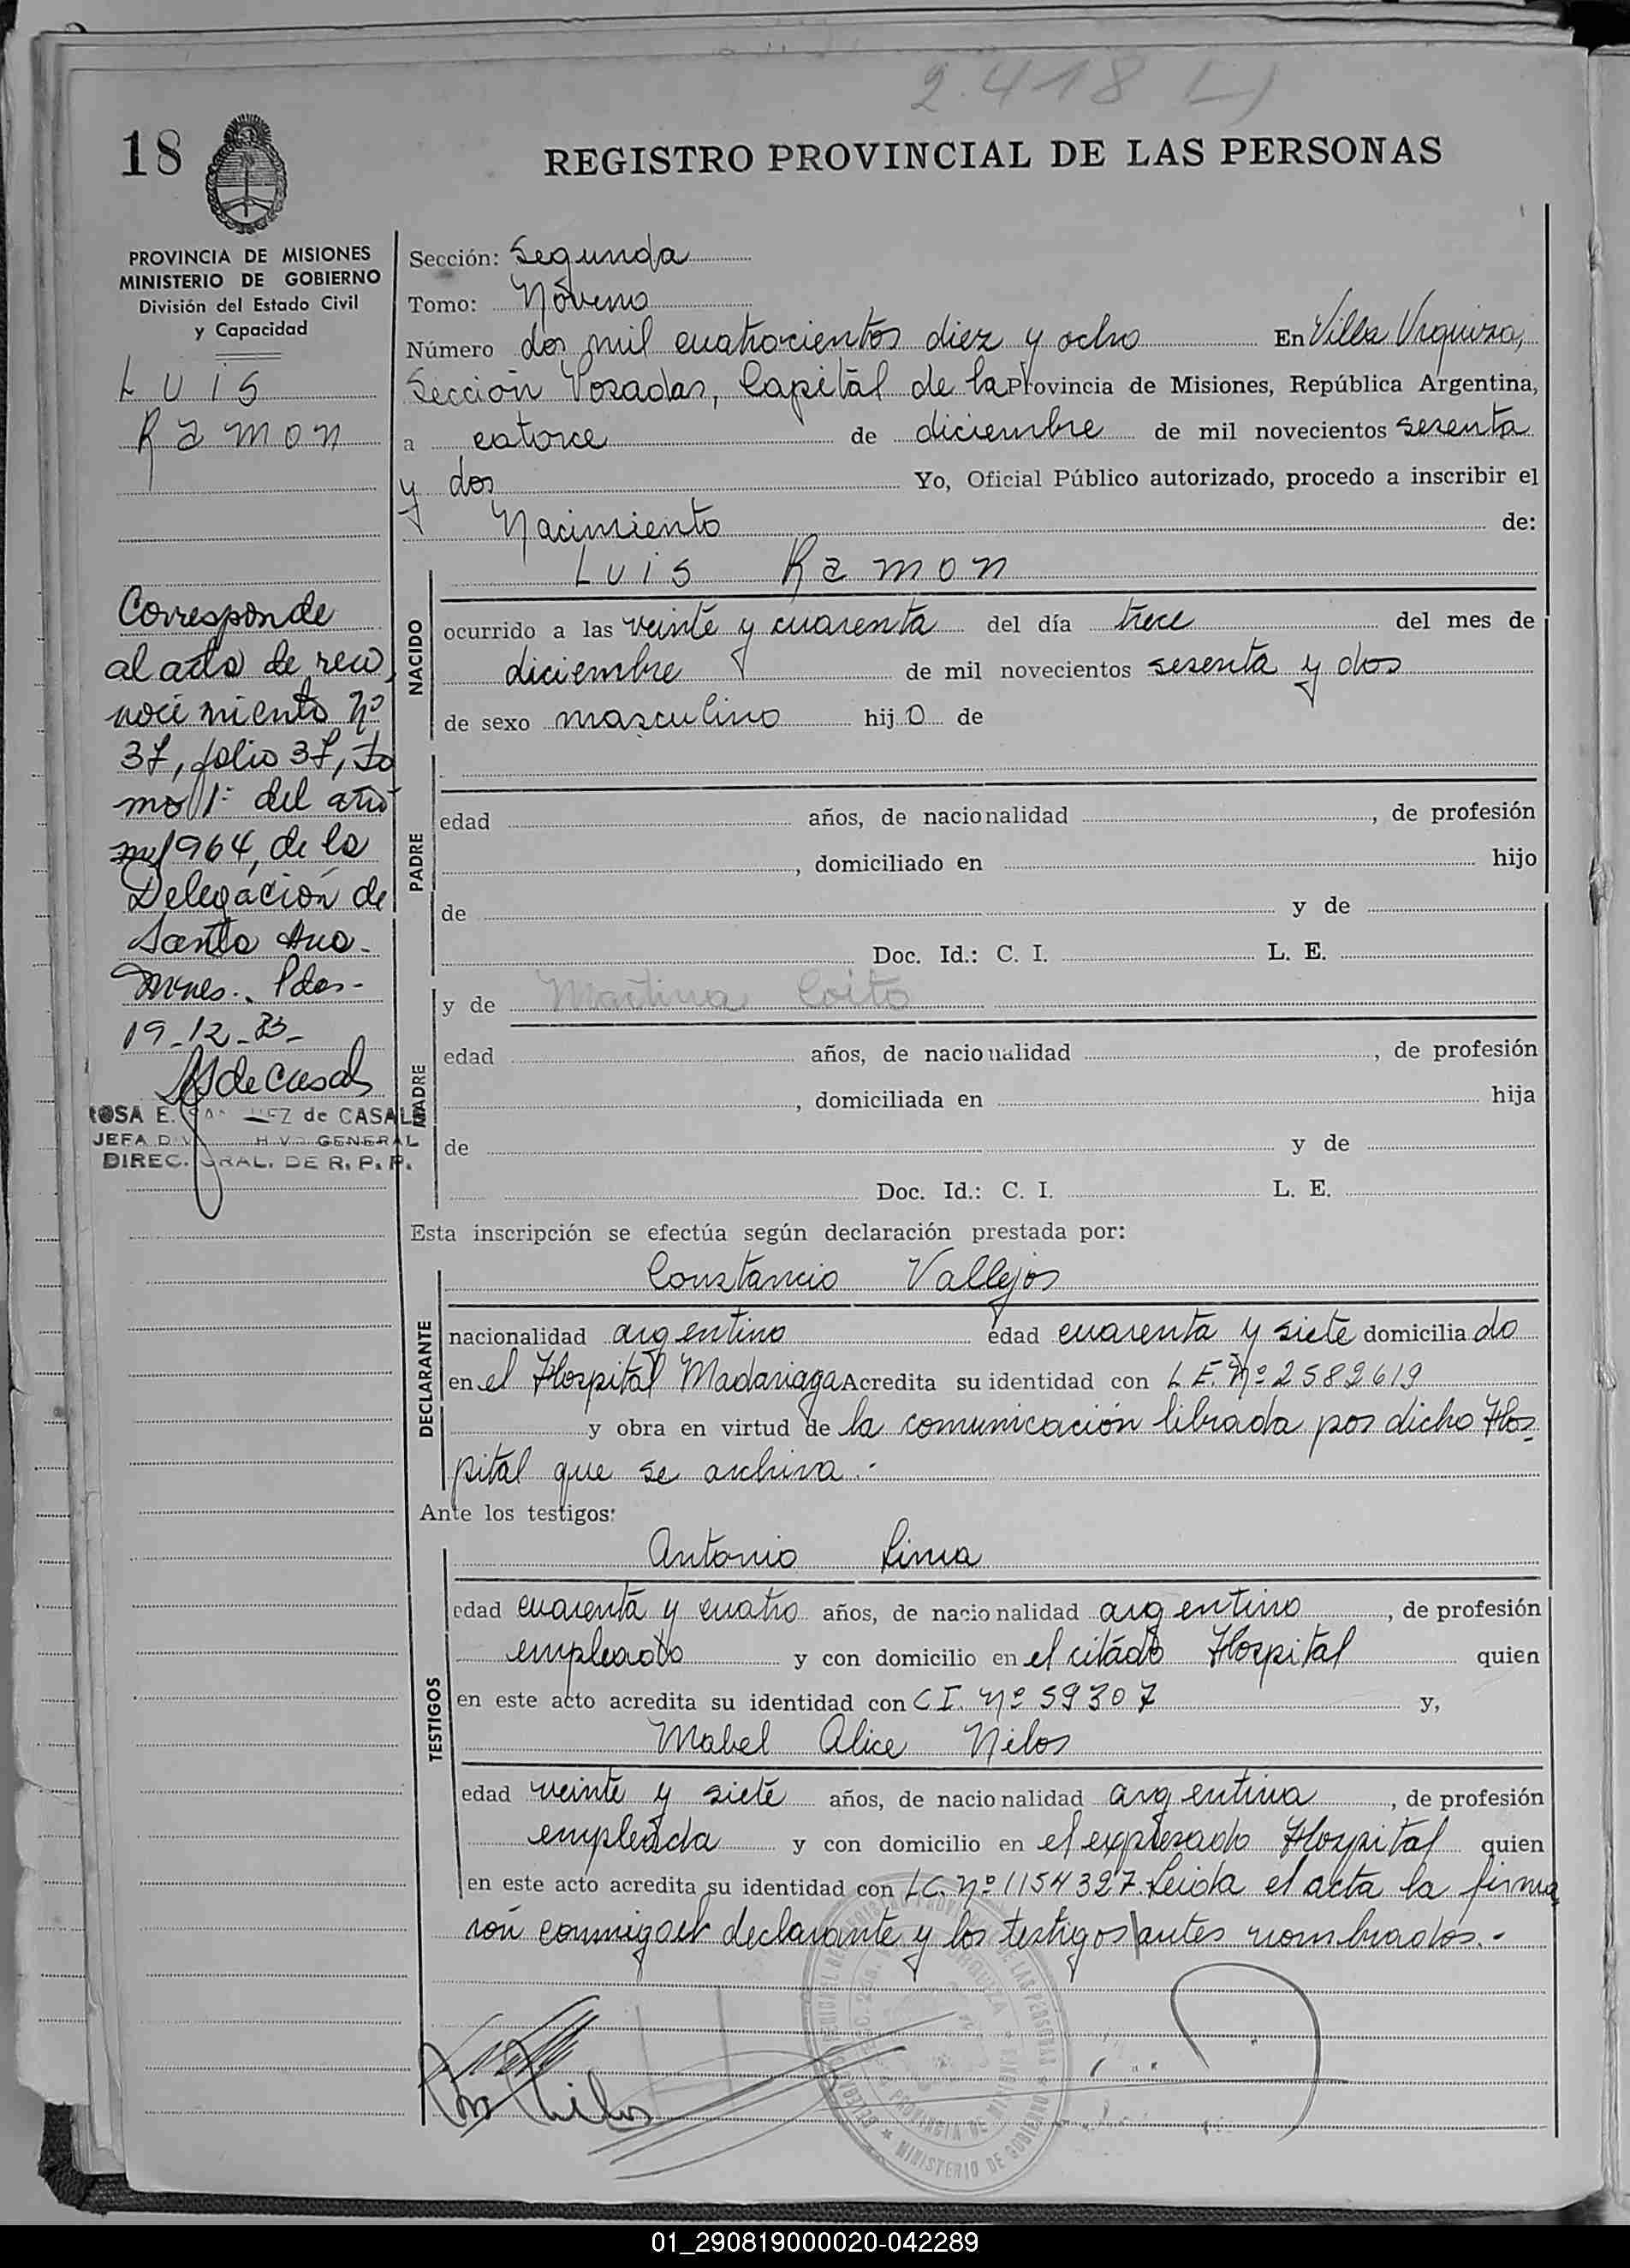 2.418
18
REGISTRO PROVINCIAL DE LAS PERSONAS
PROVINCIA DE MISIONES
MINISTERIO DE GOBIERNO
División del Estado Civil
y Capacidad
LUIS
RAMON
Corresponde
al acta de reco
nocimiento Nº
37, folio 37, to
mo 1º del año
1964, de la
Delegación de
Santa Ana.
Mnes. Pdas-
19-12-83-
ROSA E. de CASAL
JEFA GENERAL
DIREC. GRAL. DE R. P. P.
Sección: Segunda
Tomo: Noveno
Número dos mil cuatrocientos diez y ocho En Villa Urquiza,
Sección Posadas, Capital de la Provincia de Misiones, República Argentina,
a catorce de diciembre de mil novecientos sesenta
y dos Yo, Oficial Público autorizado, procedo a inscribir el
Nacimiento de:
Luis Ramon
NACIDO
ocurrido a las veinte y cuarenta del día trece del mes de
diciembre de mil novecientos sesenta y dos
de sexo masculino hijo de
PADRE
edad años, de nacionalidad , de profesión
, domiciliado en hijo
de y de
Doc. Id.: C. I. L. E.
y de Martina Coito
MADRE
edad años, de nacionalidad , de profesión
, domiciliada en hija
de y de
Doc. Id.: C. I. L. E.
Esta inscripción se efectúa según declaración prestada por:
Constancio Vallejos
DECLARANTE
nacionalidad argentino edad cuarenta y siete domiciliado
en el Hospital Madariaga Acredita su identidad con L.E. Nº 2582619
y obra en virtud de la comunicación librada por dicho Hos
pital que se archiva.-
Ante los testigos:
Antonio Lima
TESTIGOS
edad cuarenta y cuatro años, de nacionalidad argentino, de profesión
empleado y con domicilio en el citado Hospital quien
en este acto acredita su identidad con C.I. Nº 59307 y,
Mabel Alice Nilos
edad veinte y siete años, de nacionalidad argentina, de profesión
empleada y con domicilio en el expresado Hospital quien
en este acto acredita su identidad con L.C. Nº 1154327. Leida el acta la firma
ron conmigo el declarante y los testigos antes nombrados.-
01_290819000020-042289